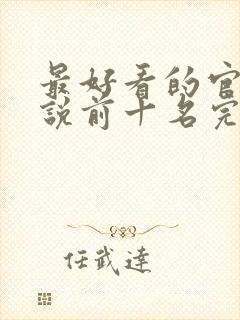 最好看的官
說前十名完
任武達